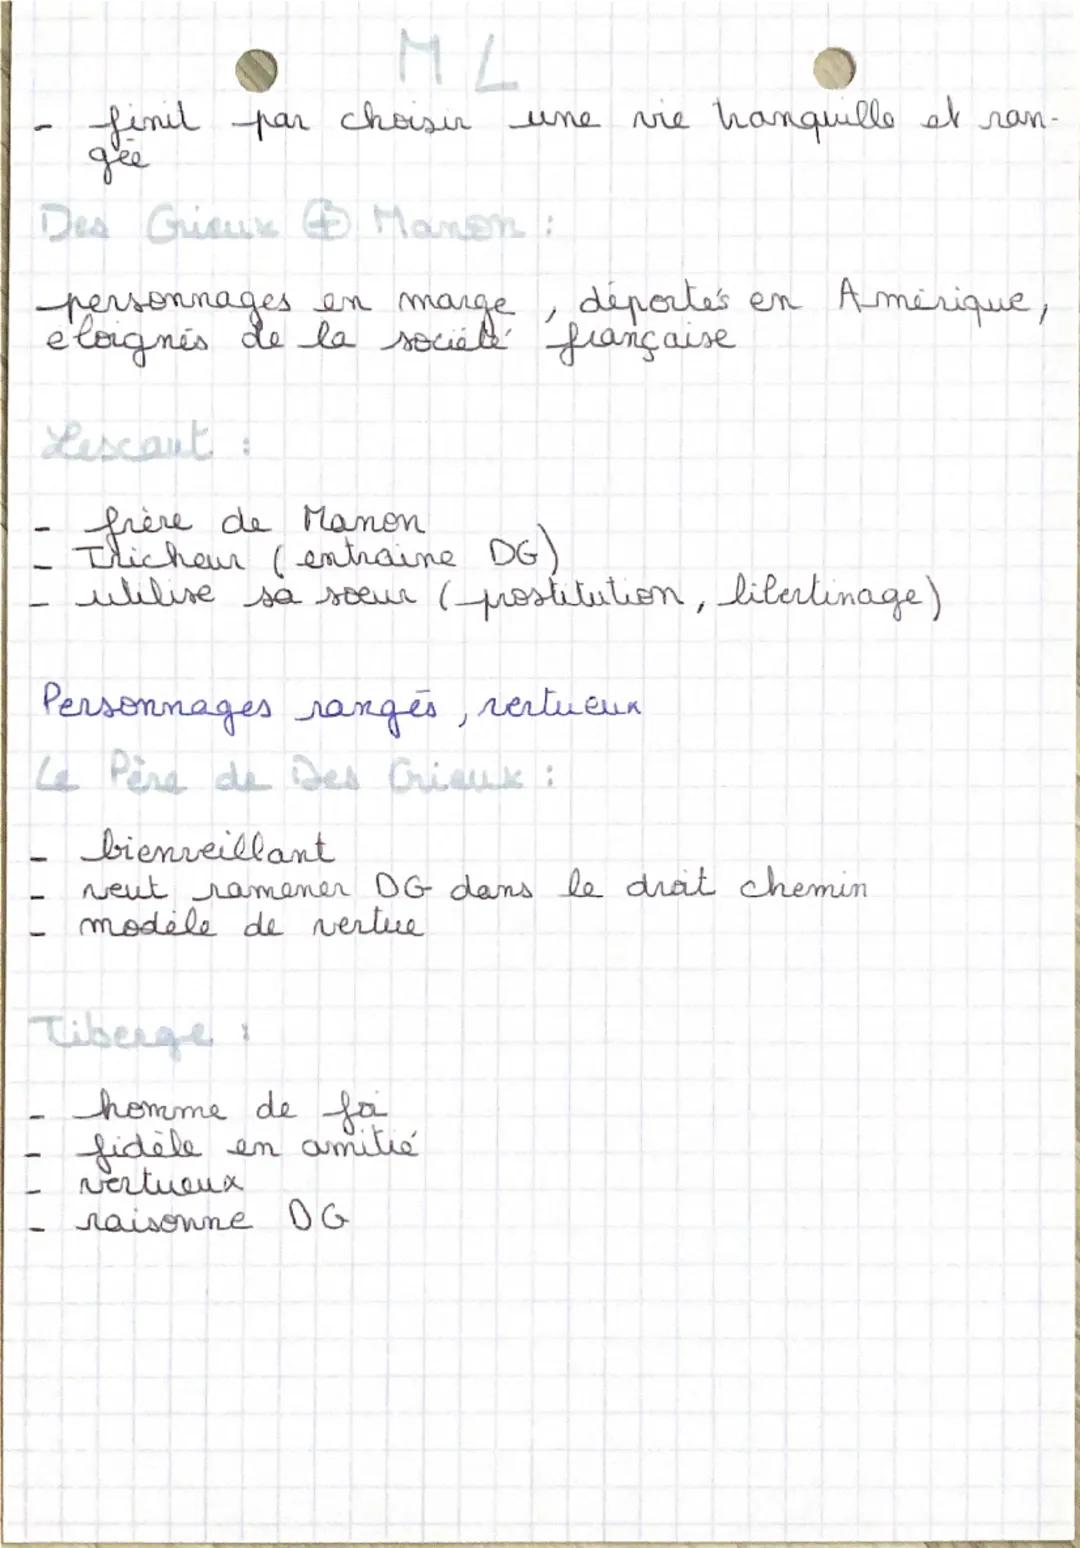 ML
- finit par choisir une vie tranquille et ran-
gée
Des Grieux ⊕ Manon :
personnages en marge, déportés en Amérique,
éloignés de la société française
Lescaut :
- frère de Manon
- Tricheur (entraine DG)
- utilise sa soeur (prostitution, libertinage)
Personnages rangés, vertueux
Le Père de Des Grieux :
- bienveillant
- veut ramener DG dans le droit chemin
- modèle de vertue
Tiberge :
- homme de foi
- fidèle en amitié
- vertueux
- raisonne DG